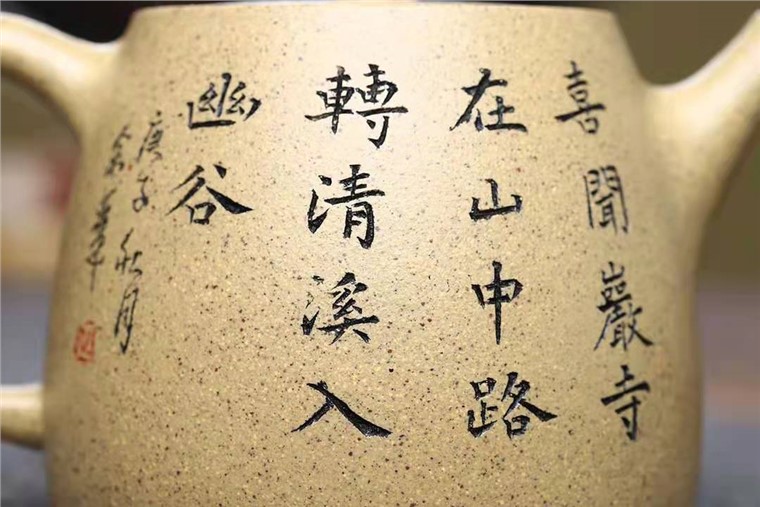 喜聞巖寺
在山中路
轉清溪入
幽谷
庚子秋月